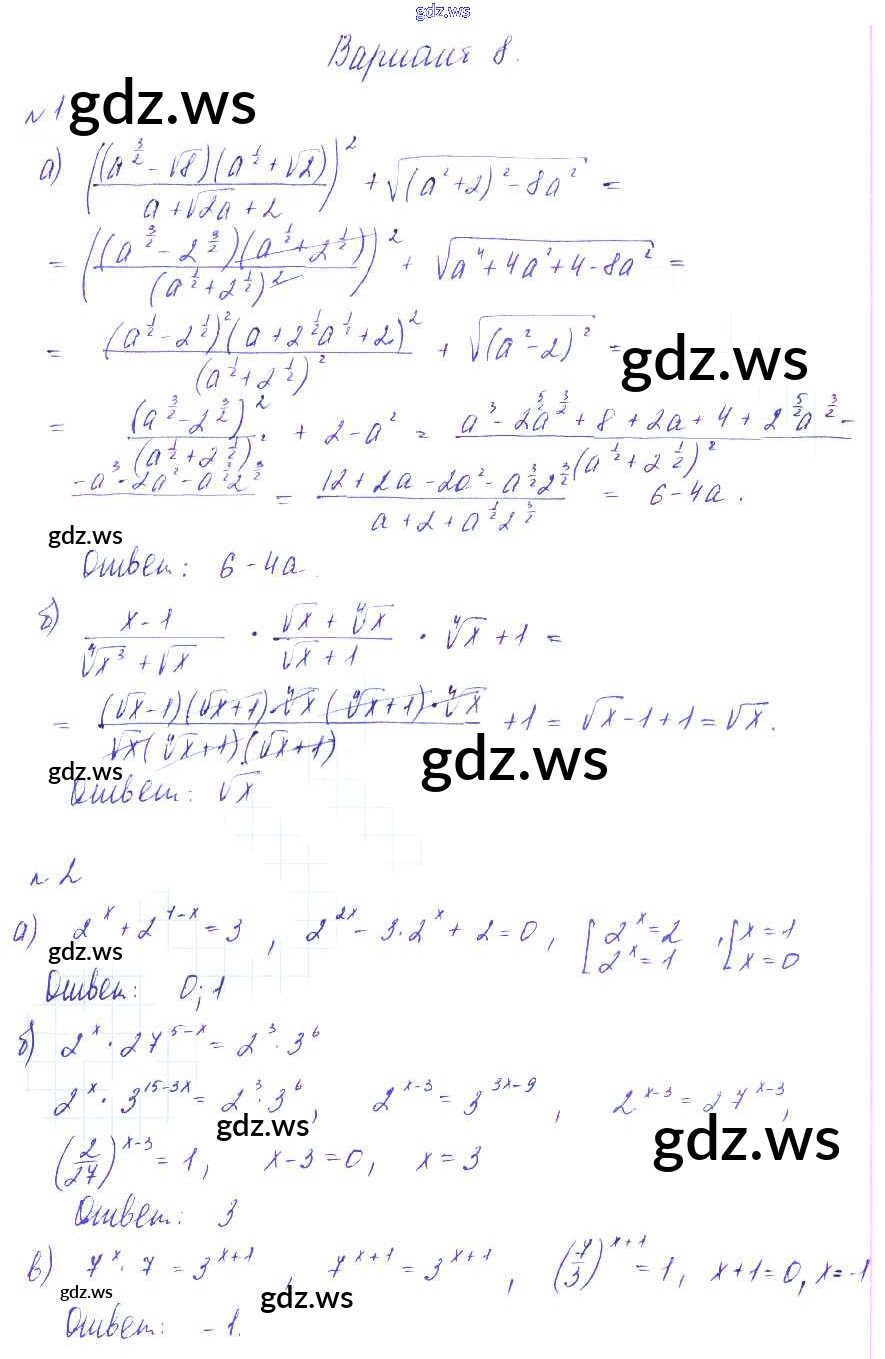 gdz.ws
Вариант 8.
№1 gdz.ws
а) (((a^(3/2) - √8)(a^(1/2) + √2))/(a + √2a + 2))² + √((a² + 2)² - 8a²) =
= (((a^(3/2) - 2^(3/2))(a^(1/2) + 2^(1/2)))/(a^(1/2) + 2^(1/2))²)² + √(a⁴ + 4a² + 4 - 8a²) =
= ((a^(1/2) - 2^(1/2))²(a + 2^(1/2)a^(1/2) + 2)²)/(a^(1/2) + 2^(1/2))² + √((a² - 2)²) =
gdz.ws
= (a^(3/2) - 2^(3/2))²/(a^(1/2) + 2^(1/2))² + 2 - a² = (a³ - 2^(5/2)a^(3/2) + 8 + 2a + 4 + 2^(5/2)a^(3/2) -
- a³ - 2a² - a^(3/2)2^(3/2))/(a^(1/2) + 2^(1/2))² = (12 + 2a - 2a² - a^(3/2)2^(3/2))/(a + 2 + a^(1/2)2^(3/2)) = 6 - 4a.
gdz.ws
Ответ: 6 - 4a.
б) (x - 1)/(⁴√x³ + √x) · (√x + ⁴√x)/(√x + 1) · ⁴√x + 1 =
= ((√x - 1)(√x + 1)·⁴√x(⁴√x + 1)·⁴√x)/(√x(⁴√x + 1)(√x + 1)) + 1 = √x - 1 + 1 = √x.
gdz.ws gdz.ws
Ответ: √x
№2
а) 2^x + 2^(1-x) = 3, 2^(2x) - 3·2^x + 2 = 0, [2^x = 2 2^x = 1, [x = 1 x = 0
gdz.ws
Ответ: 0; 1
б) 2^x · 27^(5-x) = 2³ · 3⁶
2^x · 3^(15-3x) = 2³ · 3⁶, 2^(x-3) = 3^(3x-9), 2^(x-3) = 27^(x-3),
gdz.ws gdz.ws
(2/27)^(x-3) = 1, x - 3 = 0, x = 3
Ответ: 3
в) 7^x · 7 = 3^(x+1), 7^(x+1) = 3^(x+1), (7/3)^(x+1) = 1, x + 1 = 0, x = -1
gdz.ws gdz.ws
Ответ: -1.